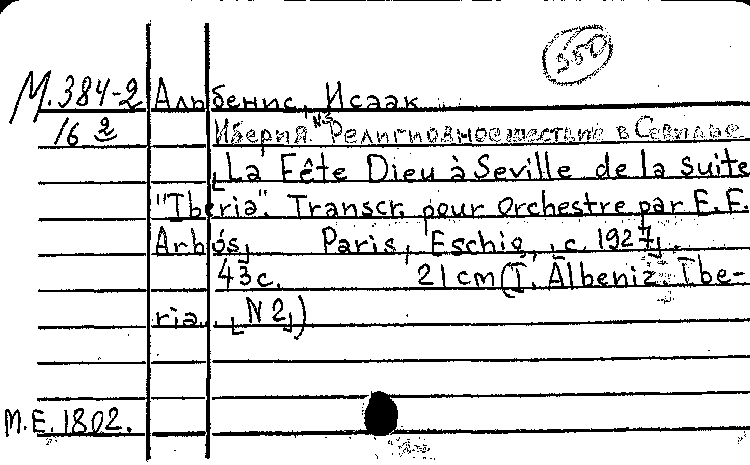 550
М.384-2 Альбенис, Исаак
16 2 Иберия. №3 Религиозное шествие в Севилье
[La Fête Dieu à Seville de la suite
"Iberia". Transcr. pour orchestre par E.F.
Arbós] Paris, Eschig, [c. 1927].
43с. 21cm (I. Albeniz. Ibe-
ria. [N2])
M.E.1802.